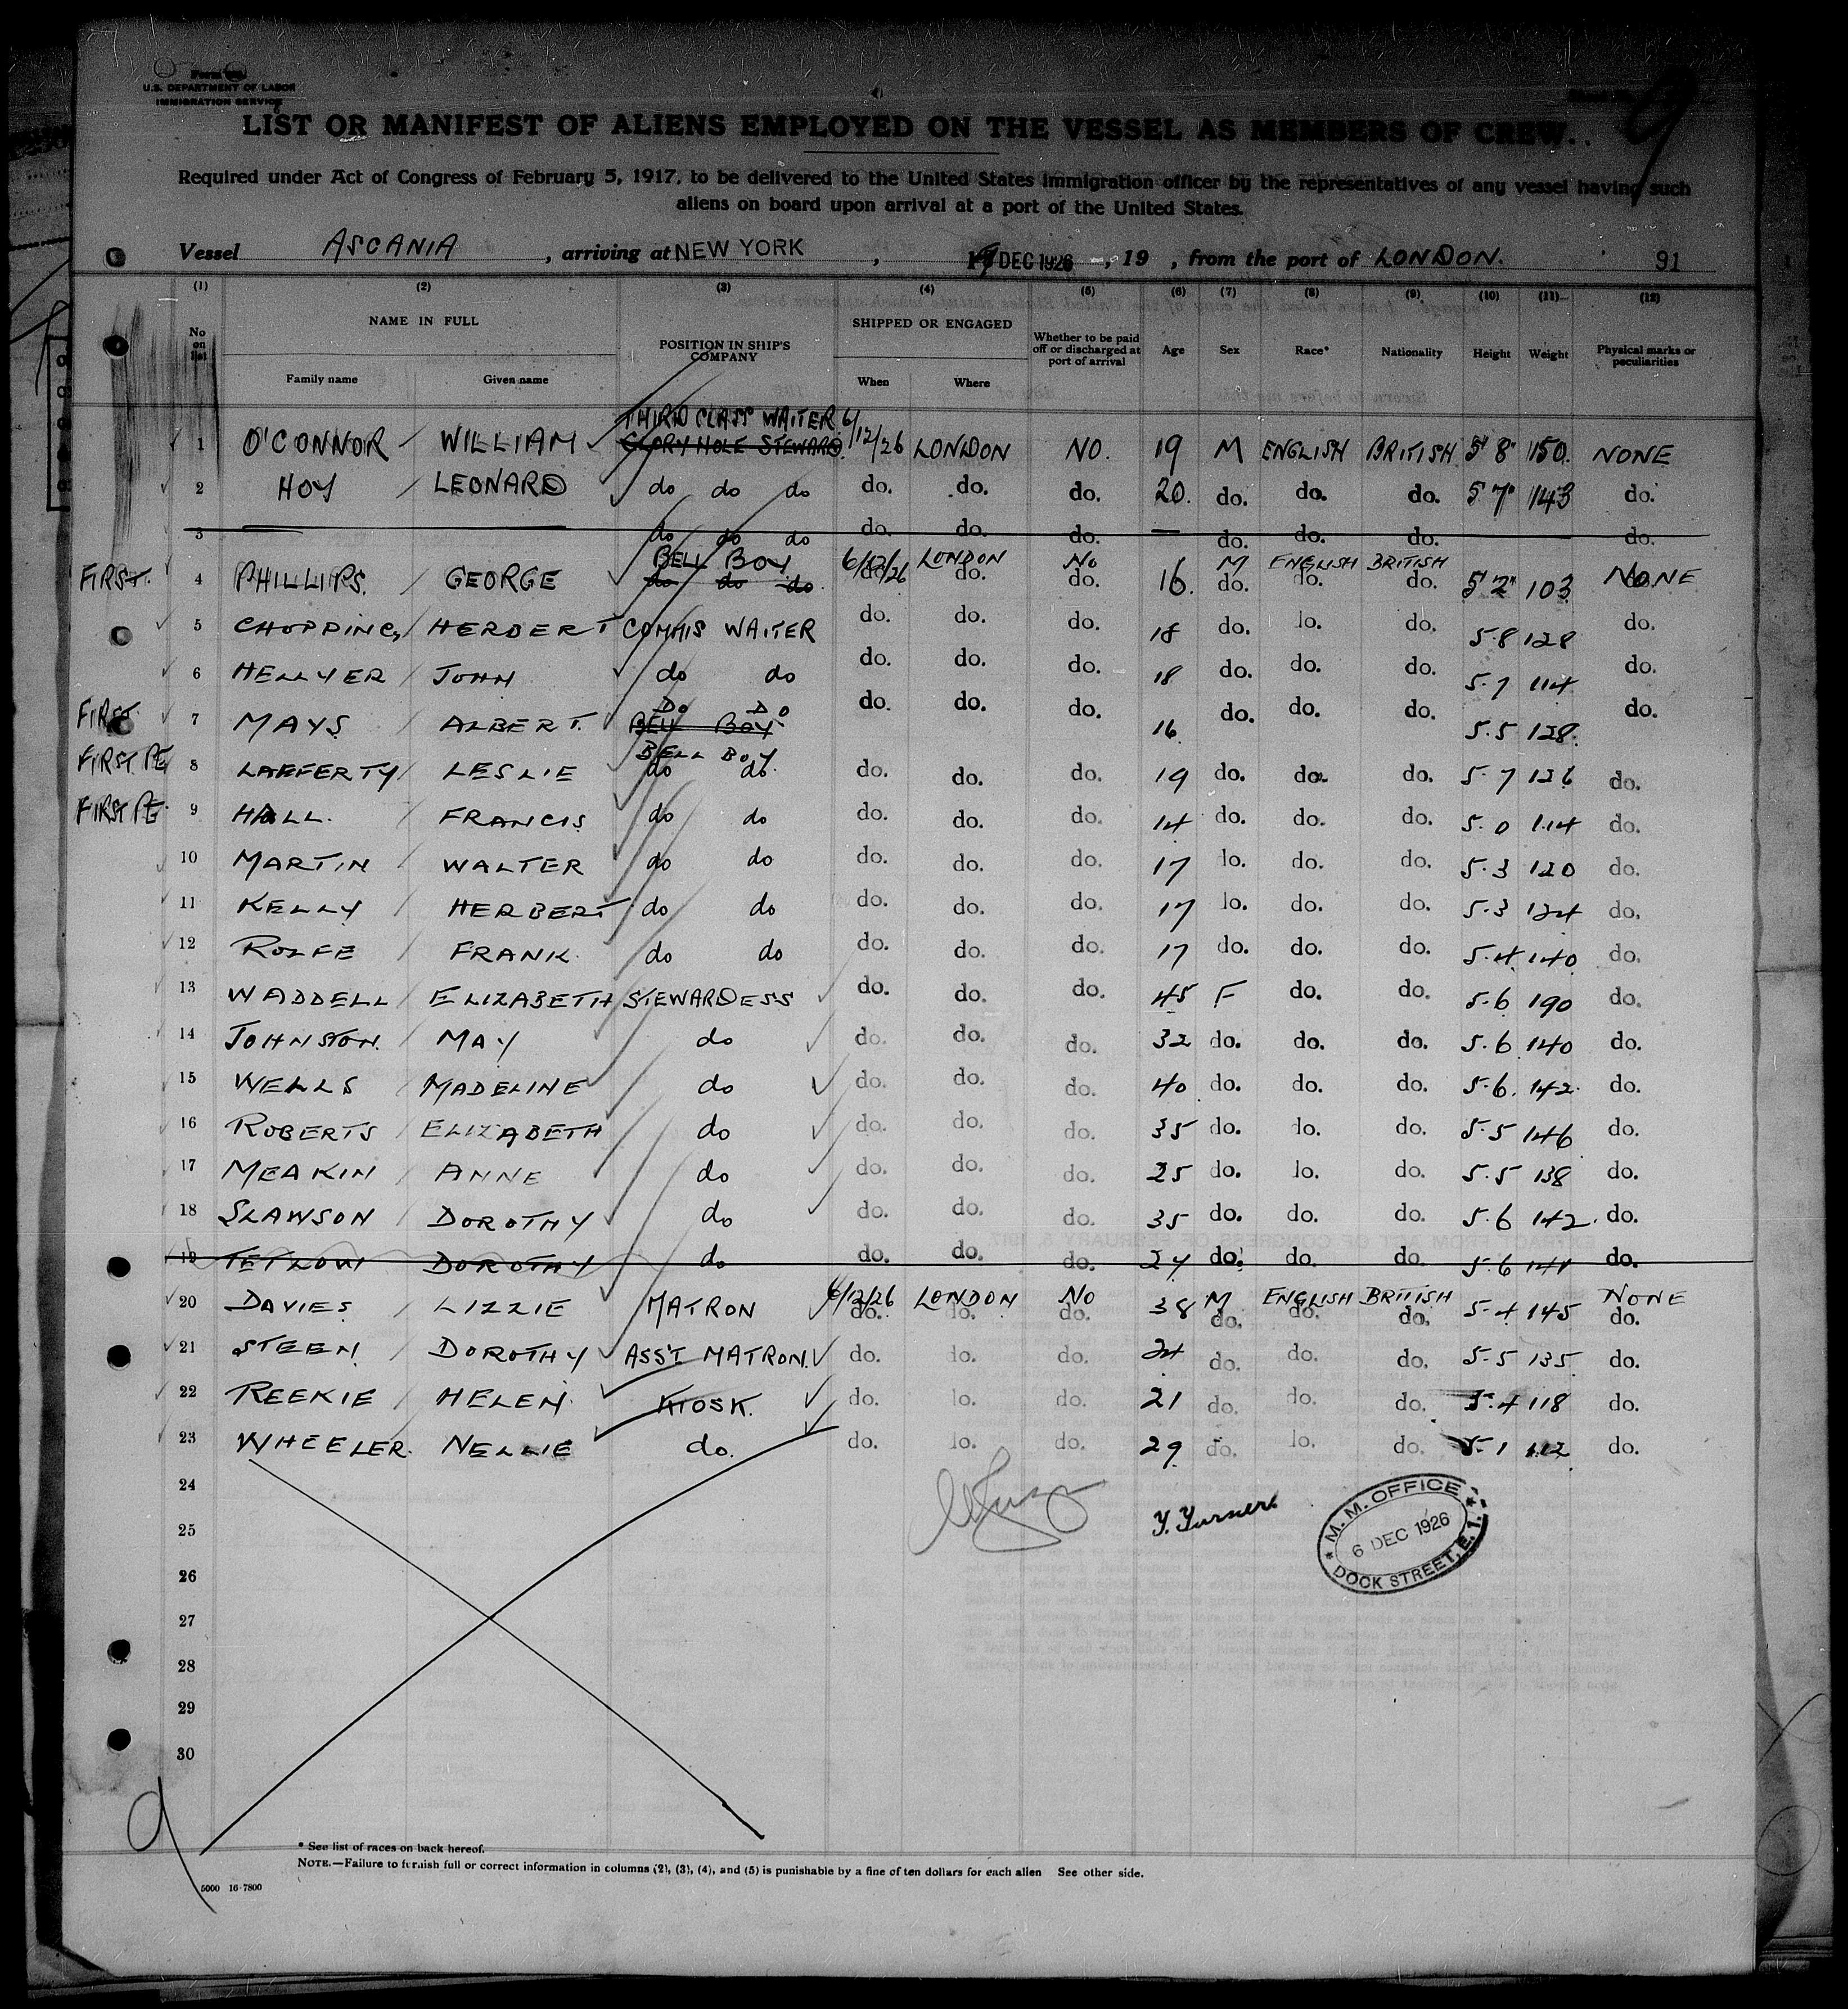 U.S. DEPARTMENT OF LABOR
IMMIGRATION SERVICE
9
LIST OR MANIFEST OF ALIENS EMPLOYED ON THE VESSEL AS MEMBERS OF CREW.
Required under Act of Congress of February 5, 1917, to be delivered to the United States immigration officer by the representatives of any vessel having such
aliens on board upon arrival at a port of the United States.
Vessel ASCANIA, arriving at NEW YORK, DEC 1926, 19 , from the port of LONDON. 91
(1) (2) (3) (4) (5) (6) (7) (8) (9) (10) (11) (12)
No on list NAME IN FULL POSITION IN SHIP'S COMPANY SHIPPED OR ENGAGED Whether to be paid off or discharged at port of arrival Age Sex Race* Nationality Height Weight Physical marks or peculiarities
Family name Given name When Where
THIRD CLASS WAITER
1 O'CONNOR WILLIAM GLORY HOLE STEWARD 6/12/26 LONDON NO. 19 M ENGLISH BRITISH 5' 8" 150 NONE
2 HOY LEONARD do do do do. do. do. 20. do. do. do. 5' 7" 143 do.
3 do do do do. do. do. — do. do. do. do.
BELL BOY 6/12/26 LONDON No M ENGLISH BRITISH NONE
FIRST. 4 PHILLIPS. GEORGE do do do. do. do. do. 16. do. do. do. 5' 2" 103 do.
5 CHOPPING HERBERT COMMIS WAITER do. do. do. 18 do. do. do. 5.8 128 do.
6 HELLYER JOHN do do do. do. do. 18 do. do. do. 5.7 114 do.
Do Do
FIRST 7 MAYS ALBERT. BELL BOY do. do. do. 16 do. do. do. 5.5 128. do.
BELL BOY
FIRST PE 8 LAFFERTY LESLIE do do. do. do. do. 19 do. do. do. 5.7 126 do.
FIRST PE 9 HALL. FRANCIS do do do. do. do. 14 do. do. do. 5.0 114 do.
10 MARTIN WALTER do do do. do. do. 17 do. do. do. 5.3 120 do.
11 KELLY HERBERT do do do. do. do. 17 do. do. do. 5.3 124 do.
12 ROLFE FRANK. do do do. do. do. 17 do. do. do. 5.4 140 do.
13 WADDELL ELIZABETH STEWARDESS do. do. do. 45 F do. do. 5.6 190 do.
14 JOHNSTON. MAY do do. do. do. 32 do. do. do. 5.6 140 do.
15 WELLS MADELINE do do. do. do. 40 do. do. do. 5.6. 142 do.
16 ROBERTS ELIZABETH do do. do. do. 35 do. do. do. 5.5 146 do.
17 MEAKIN ANNE do do. do. do. 25 do. do. do. 5.5 138 do.
18 SLAWSON DOROTHY do do. do. do. 35 do. do. do. 5.6 142. do.
19 TETLOW DOROTHY do do. do. do. 24 do. do. do. 5.6 141 do.
6/12/26 LONDON NO M ENGLISH BRITISH NONE
20 DAVIES LIZZIE MATRON do. do. do. 38 do. do. do. 5.4 145 do.
21 STEEN DOROTHY ASS'T MATRON. do. do. do. 24 do. do. do. 5.5 135 do.
22 REEKIE HELEN KIOSK. do. do. do. 21 do. do. do. 5.4 118 do.
23 WHEELER. NELLIE do. do. do. do. 29 do. do. do. 5.1 112 do.
24
25
26
27
28
29
30
Y. Turner
* M. M. OFFICE *
6 DEC 1926
DOCK STREET, E. 1.
9
* See list of races on back hereof.
NOTE.—Failure to furnish full or correct information in columns (2), (3), (4), and (5) is punishable by a fine of ten dollars for each alien See other side.
5000 16-7800